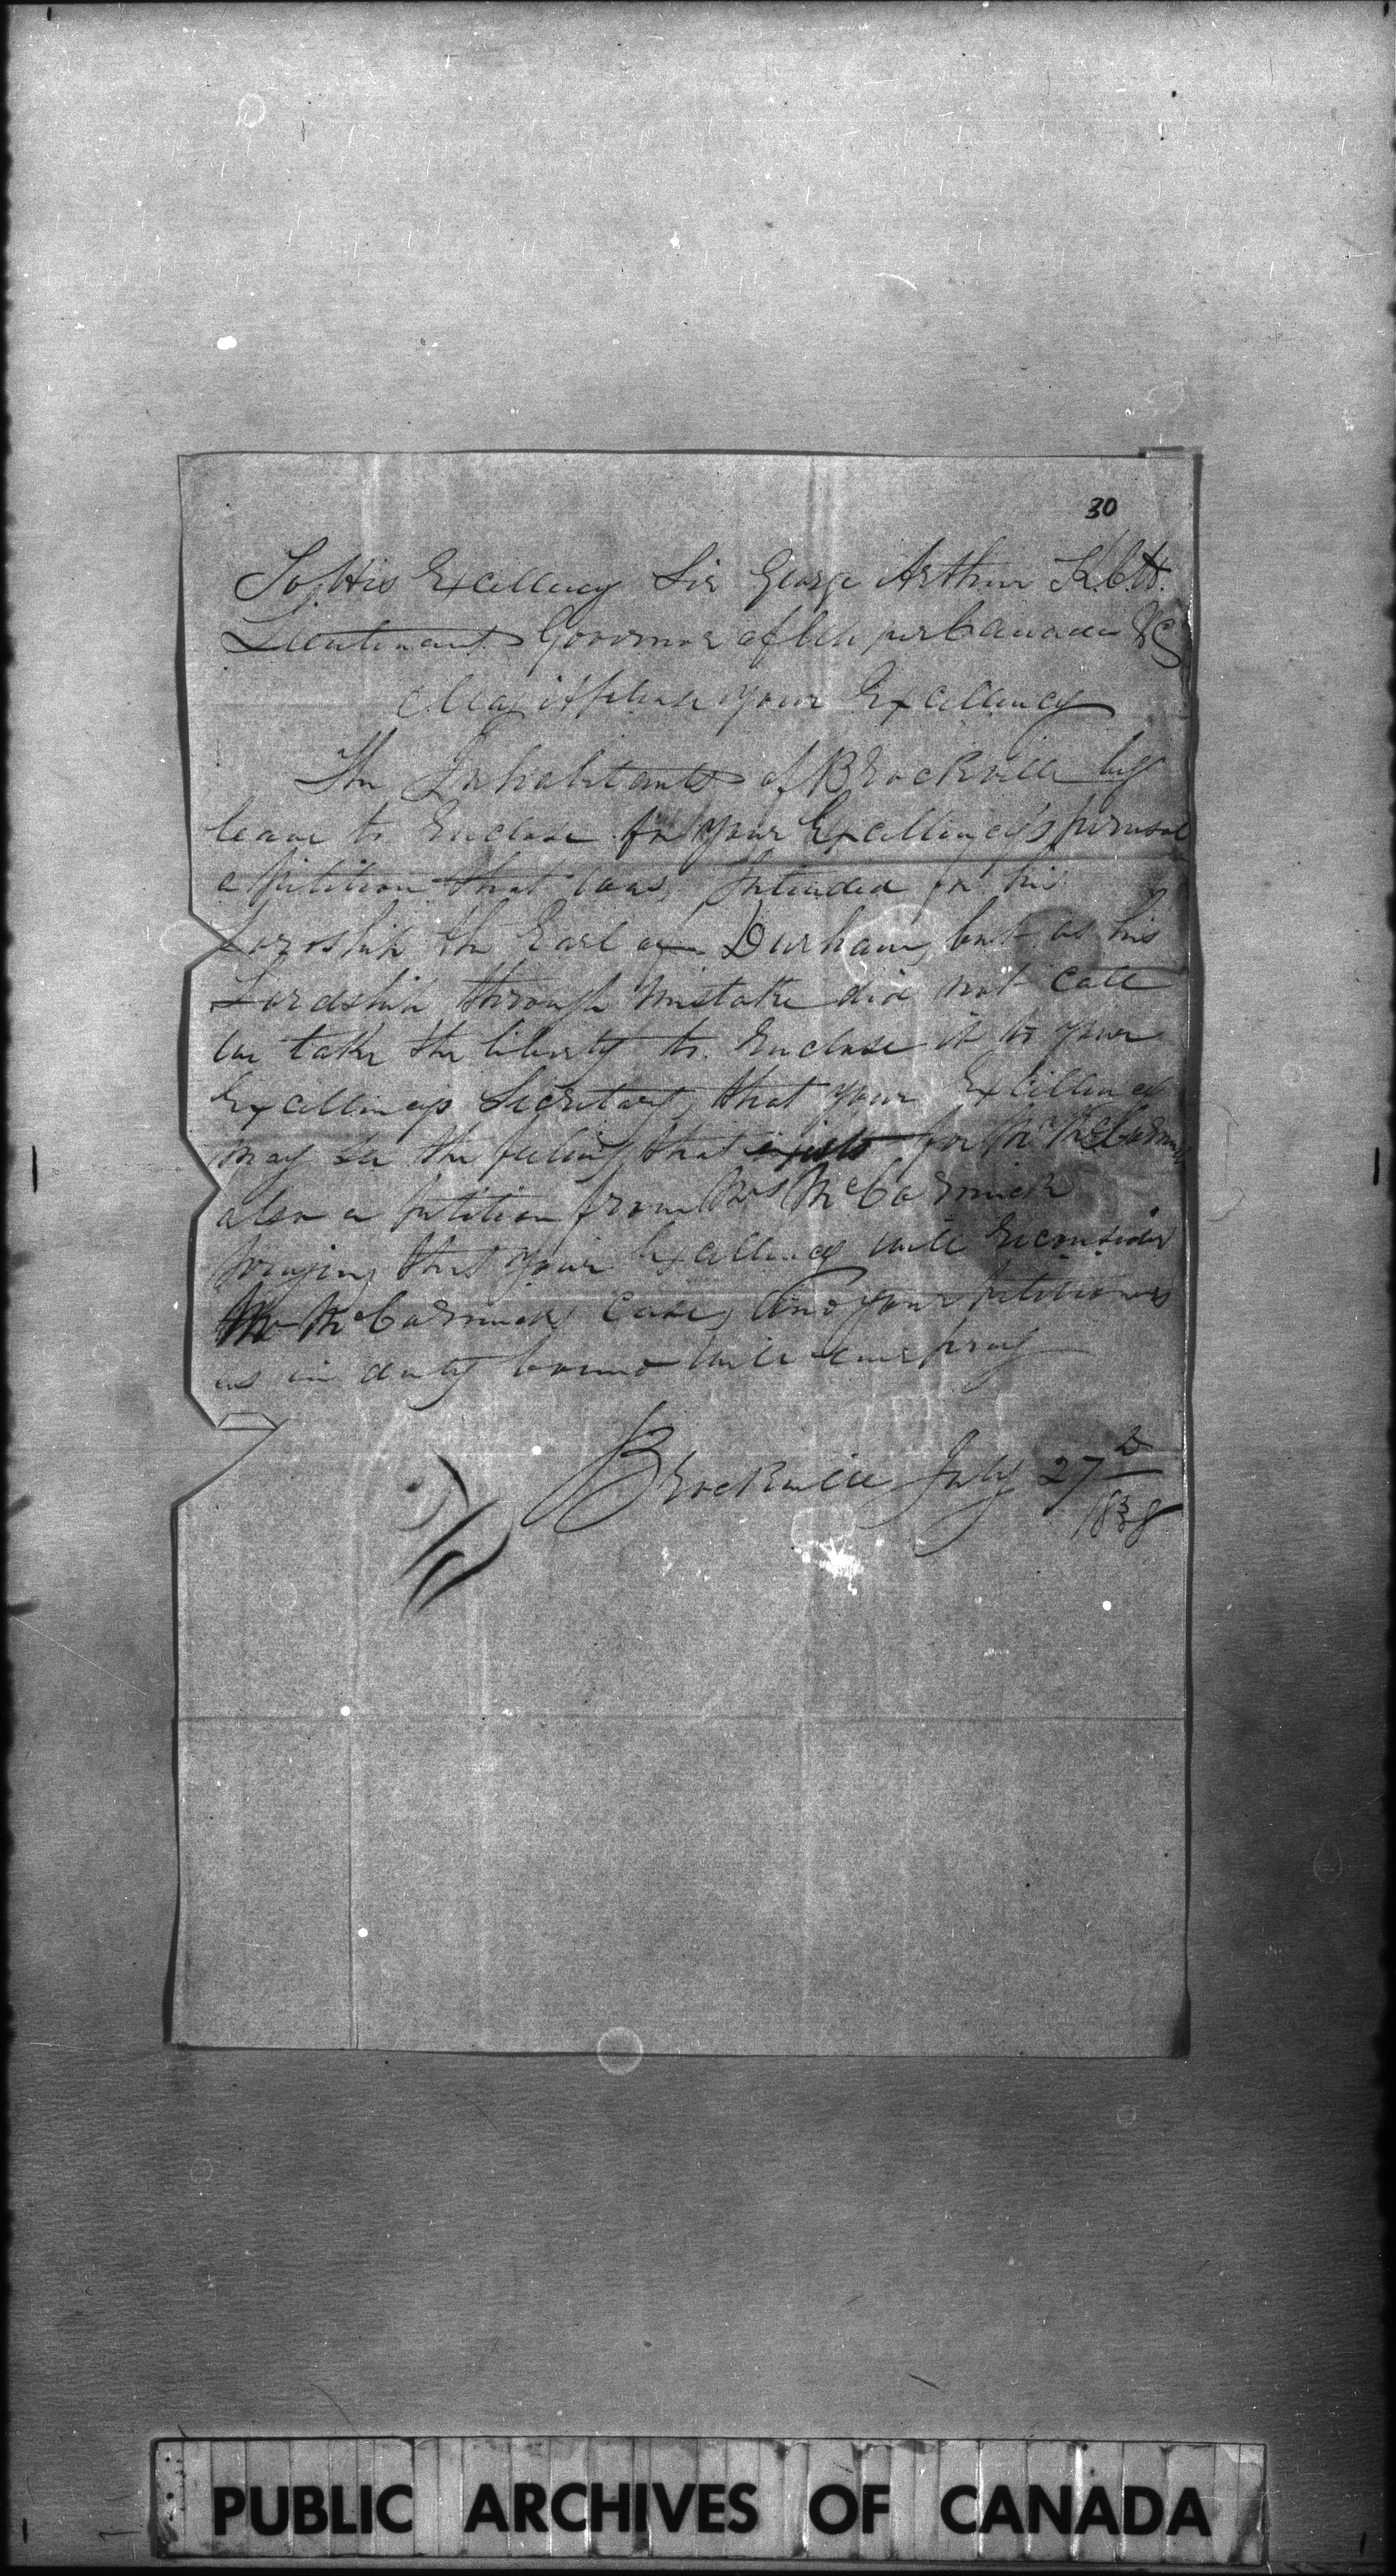 30
To His Excellency Sir George Arthur K.C.H.
Lieutenant Governor of Upper Canada &c
May it please your Excellency
The Inhabitants of Brockville beg
leave to Enclose for your Excellency's perusal
a petition that was intended for his
Lordship the Earl of Durham, but as his
Lordship through mistake did not call
we take the liberty to Enclose it to your
Excellencys Secretary, that your Excellency
may see the feeling that exists for Mr McCormick
also a petition from Mrs McCormick
praying that your Excellency will reconsider
Mr McCormicks case, And your petitioners
as in duty bound will ever pray
Brockville July 27th
1838
PUBLIC ARCHIVES OF CANADA